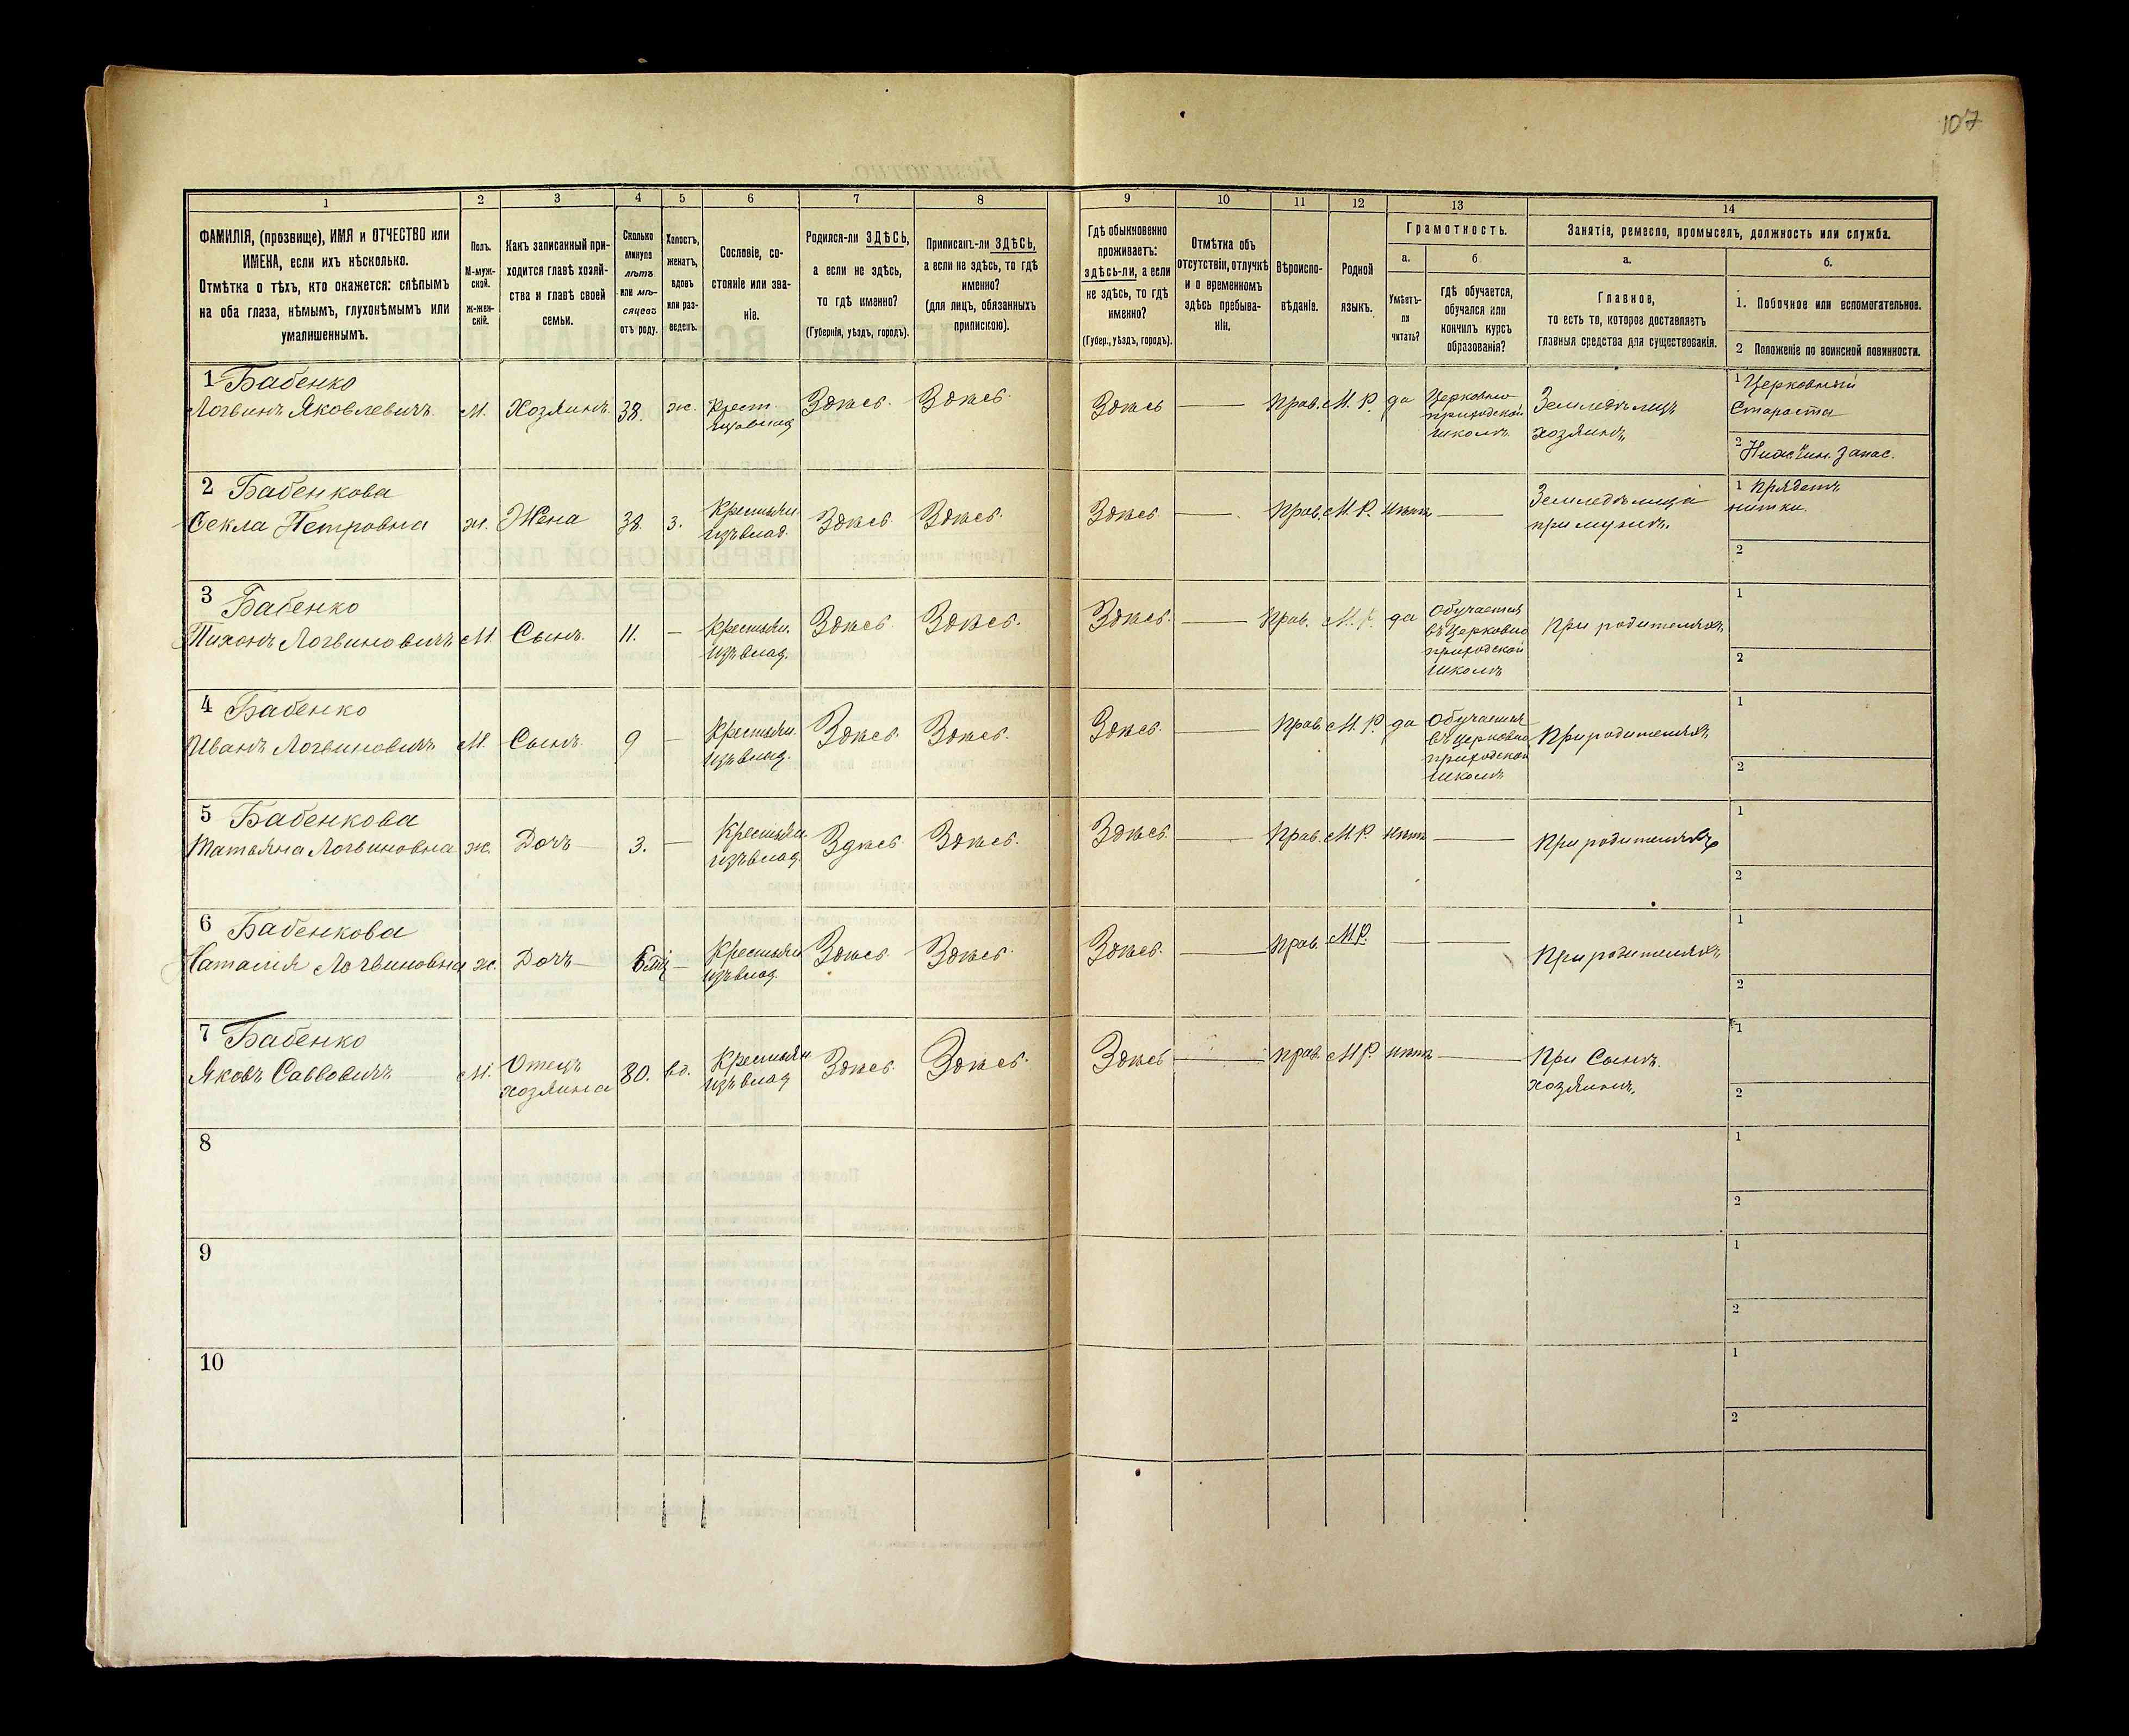 107
1
2
3
4
5
6
7
8
9
10
11
12
13
14
ФАМИЛІЯ, (прозвище), ИМЯ и ОТЧЕСТВО или
ИМЕНА, если ихъ нѣсколько.
Отмѣтка о тѣхъ, кто окажется: слѣпымъ
на оба глаза, нѣмымъ, глухонѣмымъ или
умалишеннымъ.
Полъ.
М-муж-
ской.
Ж-жен-
скій.
Какъ записанный при-
ходится главѣ хозяй-
ства и главѣ своей
семьи.
Сколько
минуло
лѣтъ
или мѣ-
сяцевъ
отъ роду.
Холостъ,
женатъ,
вдовъ
или раз-
веденъ.
Сословіе, со-
стояніе или зва-
ніе.
Родился-ли ЗДѢСЬ,
а если не здѣсь,
то гдѣ именно?
(Губернія, уѣздъ, городъ).
Приписанъ-ли ЗДѢСЬ,
а если не здѣсь, то гдѣ
именно?
(для лицъ, обязанныхъ
припискою).
Гдѣ обыкновенно
проживаетъ:
здѣсь-ли, а если
не здѣсь, то гдѣ
именно?
(Губер., уѣздъ, городъ).
Отмѣтка объ
отсутствіи, отлучкѣ
и о временномъ
здѣсь пребыва-
ніи.
Вѣроиспо-
вѣданіе.
Родной
языкъ.
Грамотность.
а.
Умѣетъ-
ли
читать?
б
гдѣ обучается,
обучался или
кончилъ курсъ
образованія?
Занятіе, ремесло, промыселъ, должность или служба.
а.
Главное,
то есть то, которое доставляетъ
главныя средства для существованія.
б.
1. Побочное или вспомогательное.
2 Положеніе по воинской повинности.
1 Бабенко
Логвинъ Яковлевичъ М. Хозяинъ 38. ж. Крест. Здѣсь. Здѣсь. Здѣсь — Прав. М. Р. да Церковно
изъ влад.
приходской
школѣ
Земледѣлецъ
хозяинъ
1 Церковный
Староста
2 Нижн. чин. запас.
2 Бабенкова
Секла Петровна ж. Жена 38. з. Крестьян. Здѣсь Здѣсь. Здѣсь — Прав. М. Р. нѣтъ —
изъ влад.
Земледѣлица
при мужѣ
1 Прядетъ
нитки.
2
3 Бабенко
Тихонъ Логвиновичъ М. Сынъ. 11. — Крестьян. Здѣсь Здѣсь. Здѣсь. — Прав. М. Р. да Обучается
изъ влад.
въ Церковно
приходской
школѣ
При родителяхъ
1
2
4 Бабенко
Иванъ Логвиновичъ М. Сынъ. 9 — Крестьян. Здѣсь. Здѣсь. Здѣсь. — Прав. М. Р. да Обучается
изъ влад.
въ церковно
приходской
школѣ
При родителяхъ
1
2
5 Бабенкова
Татьяна Логвиновна ж. Дочь 3. — Крестьян. Здѣсь Здѣсь. Здѣсь. — Прав. М. Р. нѣтъ —
изъ влад.
При родителяхъ
1
2
6 Бабенкова
Наталия Логвиновна ж. Дочь — Крестьян Здѣсь Здѣсь. Здѣсь. — Прав. М. Р. — —
изъ влад.
При родителяхъ
1
2
7 Бабенко
Яковъ Савовичъ М. Отецъ 80. вд. Крестьян Здѣсь. Здѣсь. Здѣсь — прав. М. Р. нѣтъ —
хозяина изъ влад
При Сынѣ.
хозяинѣ
1
2
8
1
2
9
1
2
10
1
2